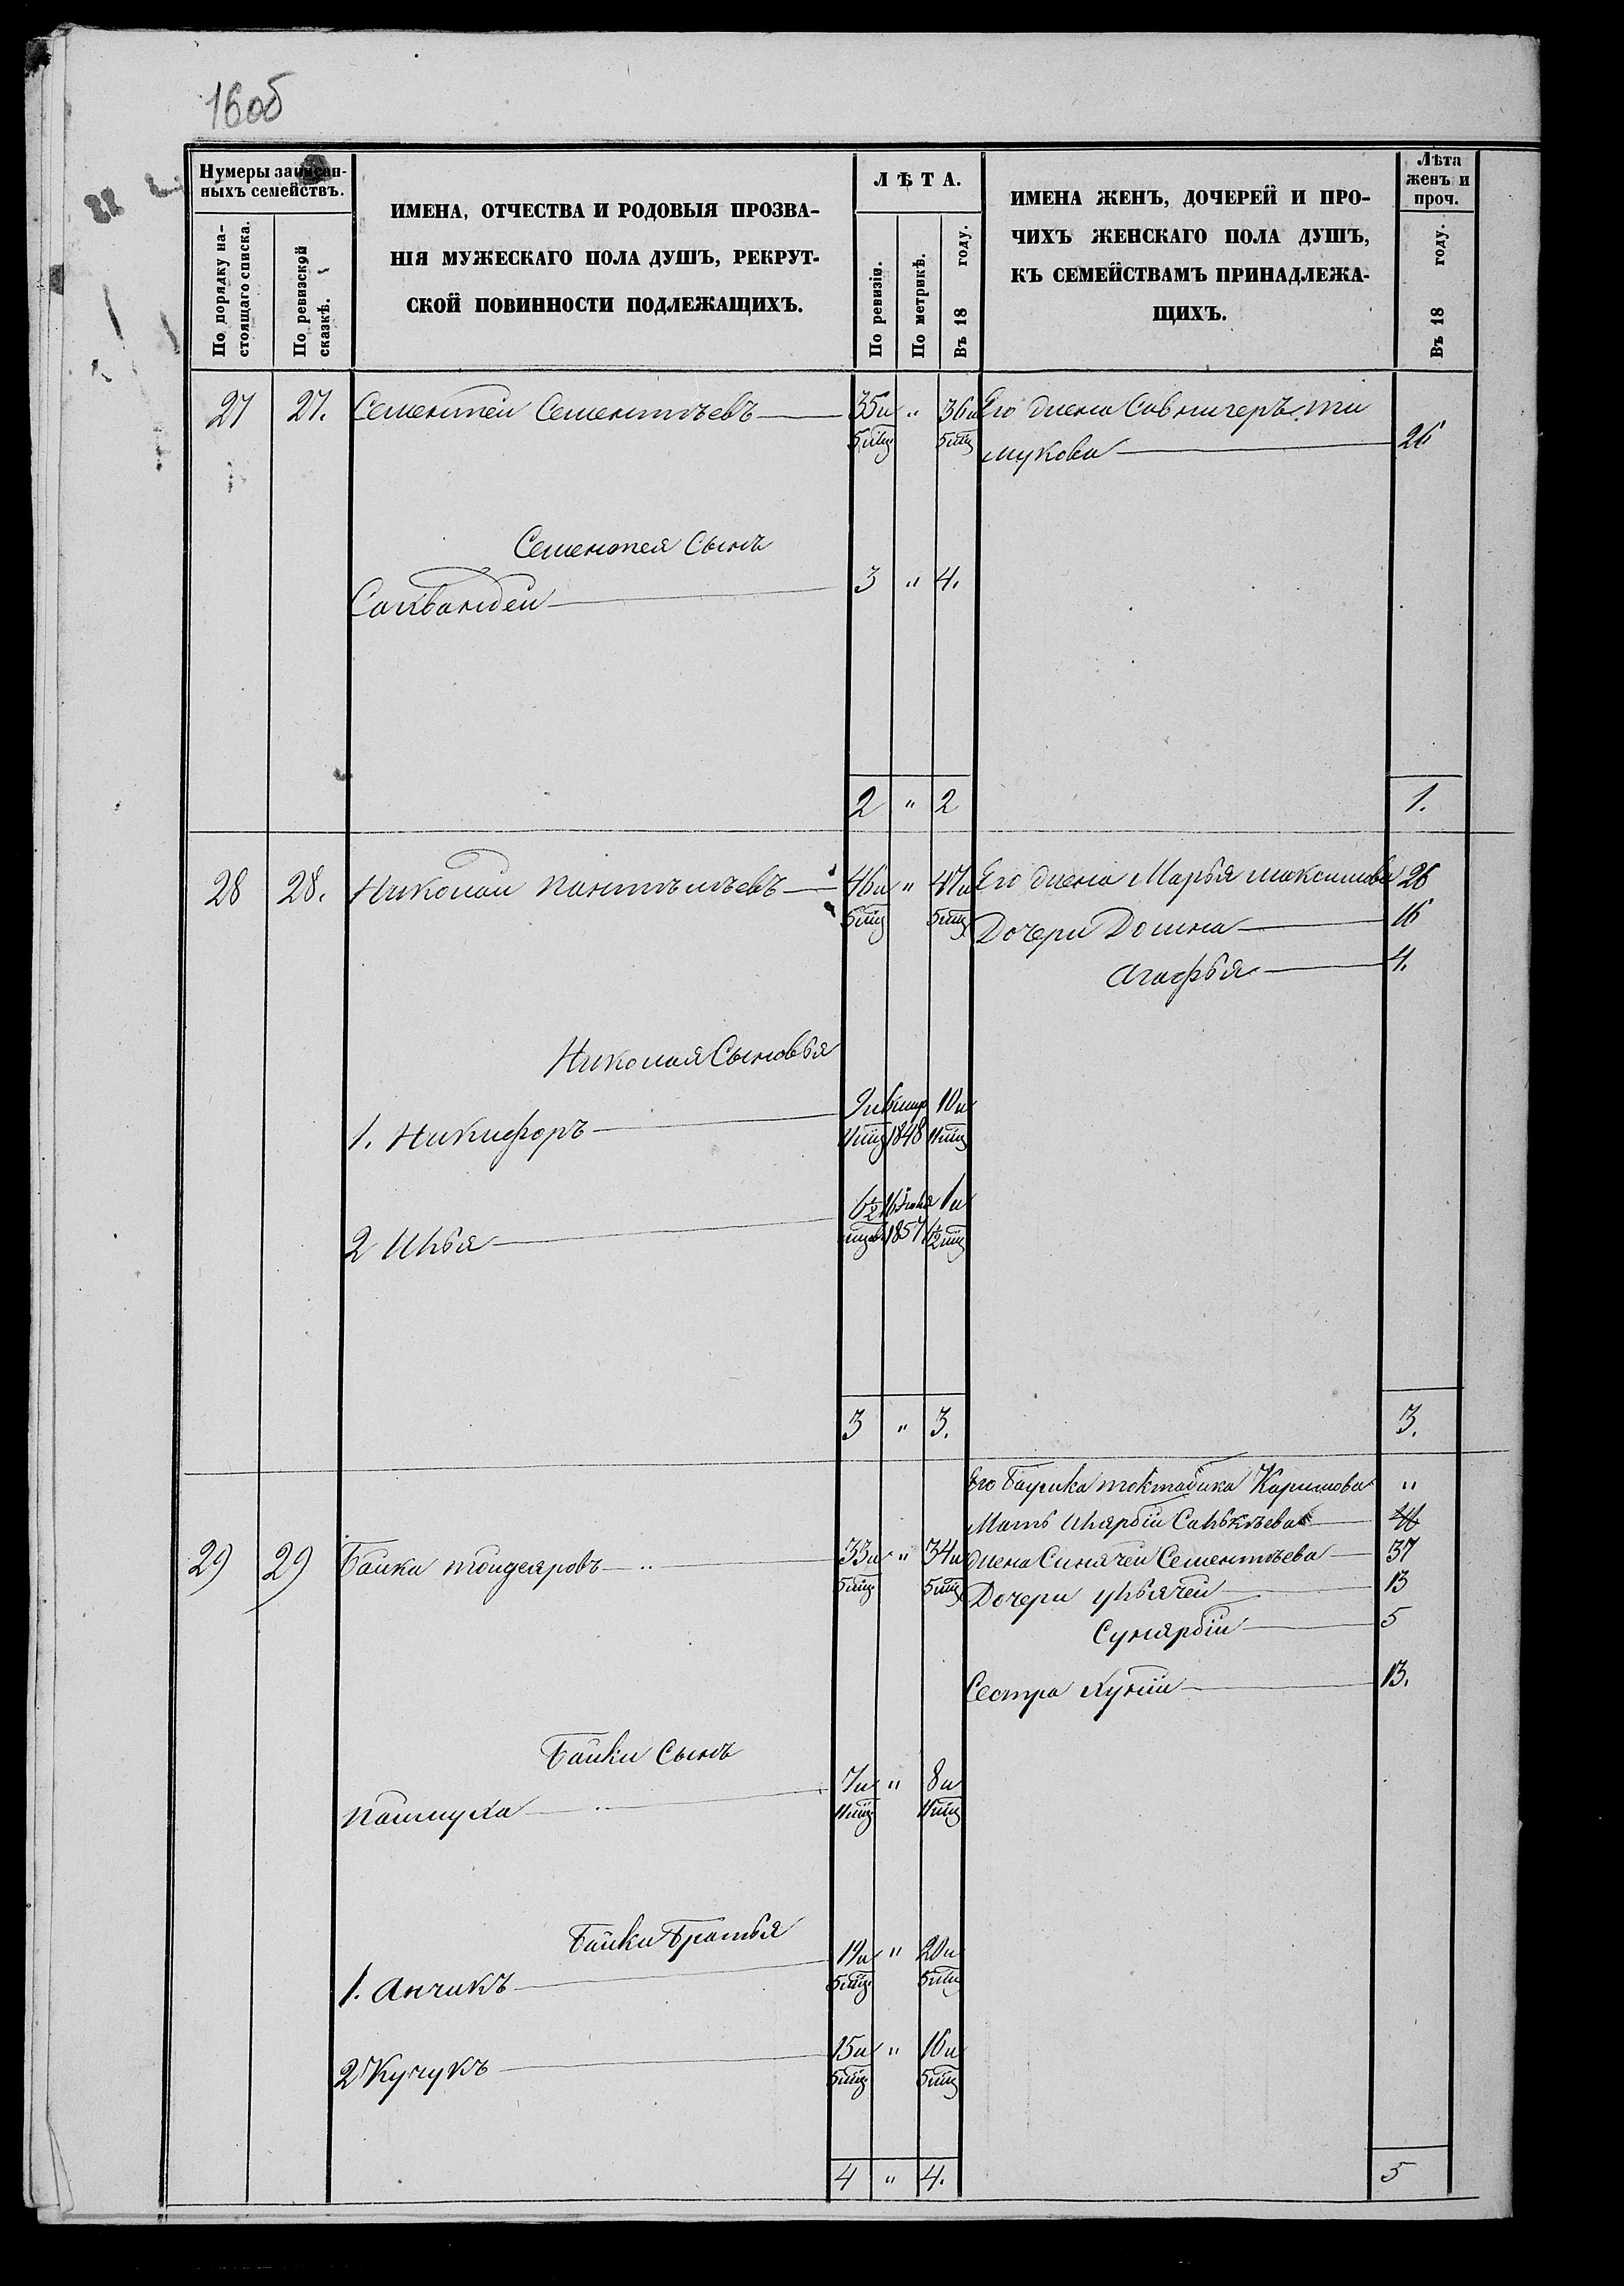 16об
Нумеры записан-
ныхъ семействъ.
По порядку на-
стоящаго списка.
По ревизской
сказкѣ.
ИМЕНА, ОТЧЕСТВА И РОДОВЫЯ ПРОЗВА-
НІЯ МУЖЕСКАГО ПОЛА ДУШЪ, РЕКРУТ-
СКОЙ ПОВИННОСТИ ПОДЛЕЖАЩИХЪ.
ЛѢТА.
По ревизіи.
По метрикѣ.
Въ 18 году.
ИМЕНА ЖЕНЪ, ДОЧЕРЕЙ И ПРО-
ЧИХЪ ЖЕНСКАГО ПОЛА ДУШЪ,
КЪ СЕМЕЙСТВАМЪ ПРИНАДЛЕЖА-
ЩИХЪ.
Лѣта
женъ и
проч.
Въ 18 году.
27 27. Сементей Сементѣевъ 35и " 36и Его жена
5 мц 5 мц мукова 26
Сементея Сынъ
Сайвандей 3 " 4.
2 " 2 1.
28 28. Николай 46и " 47и Его жена Марья Максимова 26
5 мц 5 мц Дочери Домна 16
Агафья 4.
Николая Сыновья
1. Никифоръ 9и 10и
11 мц 1848 11 мц
2 Илья 6½ 1и
1857 6½ мц
3 " 3. 3.
Его бабушка Токтабика Каримова "
Мать
29 29 Байка 33и " 34и жена Синячей Сементѣева 37
5 мц 5 мц Дочери Ульячей 13
Сунярбій 5
Сестра 13.
Байки Сынъ
Паймуха 7и " 8и
11 мц 11 мц
Байки Братья
1. Анчикъ 19и " 20и
5 мц 5 мц
2 Кучукъ 15и " 16и
5 мц 5 мц
4 " 4. 5